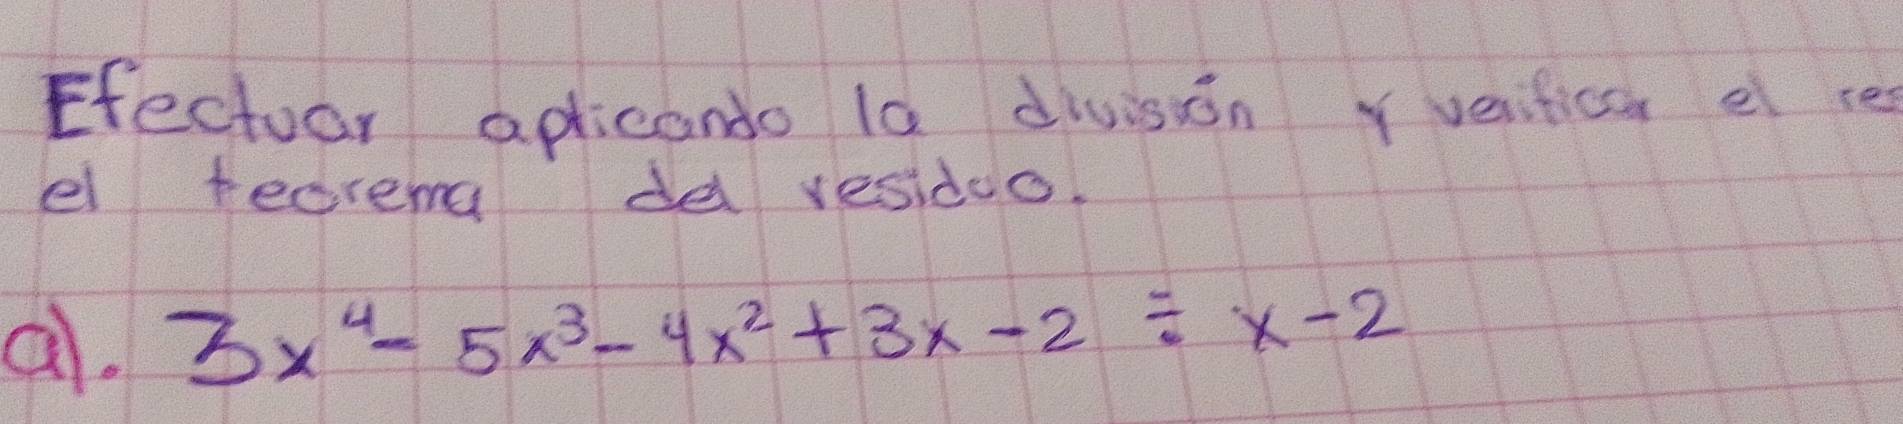 Efectuar aplicando la división y verificar el res
el teorema del residuo.
a). 3x⁴ - 5x³ - 4x² + 3x - 2 ÷ x - 2